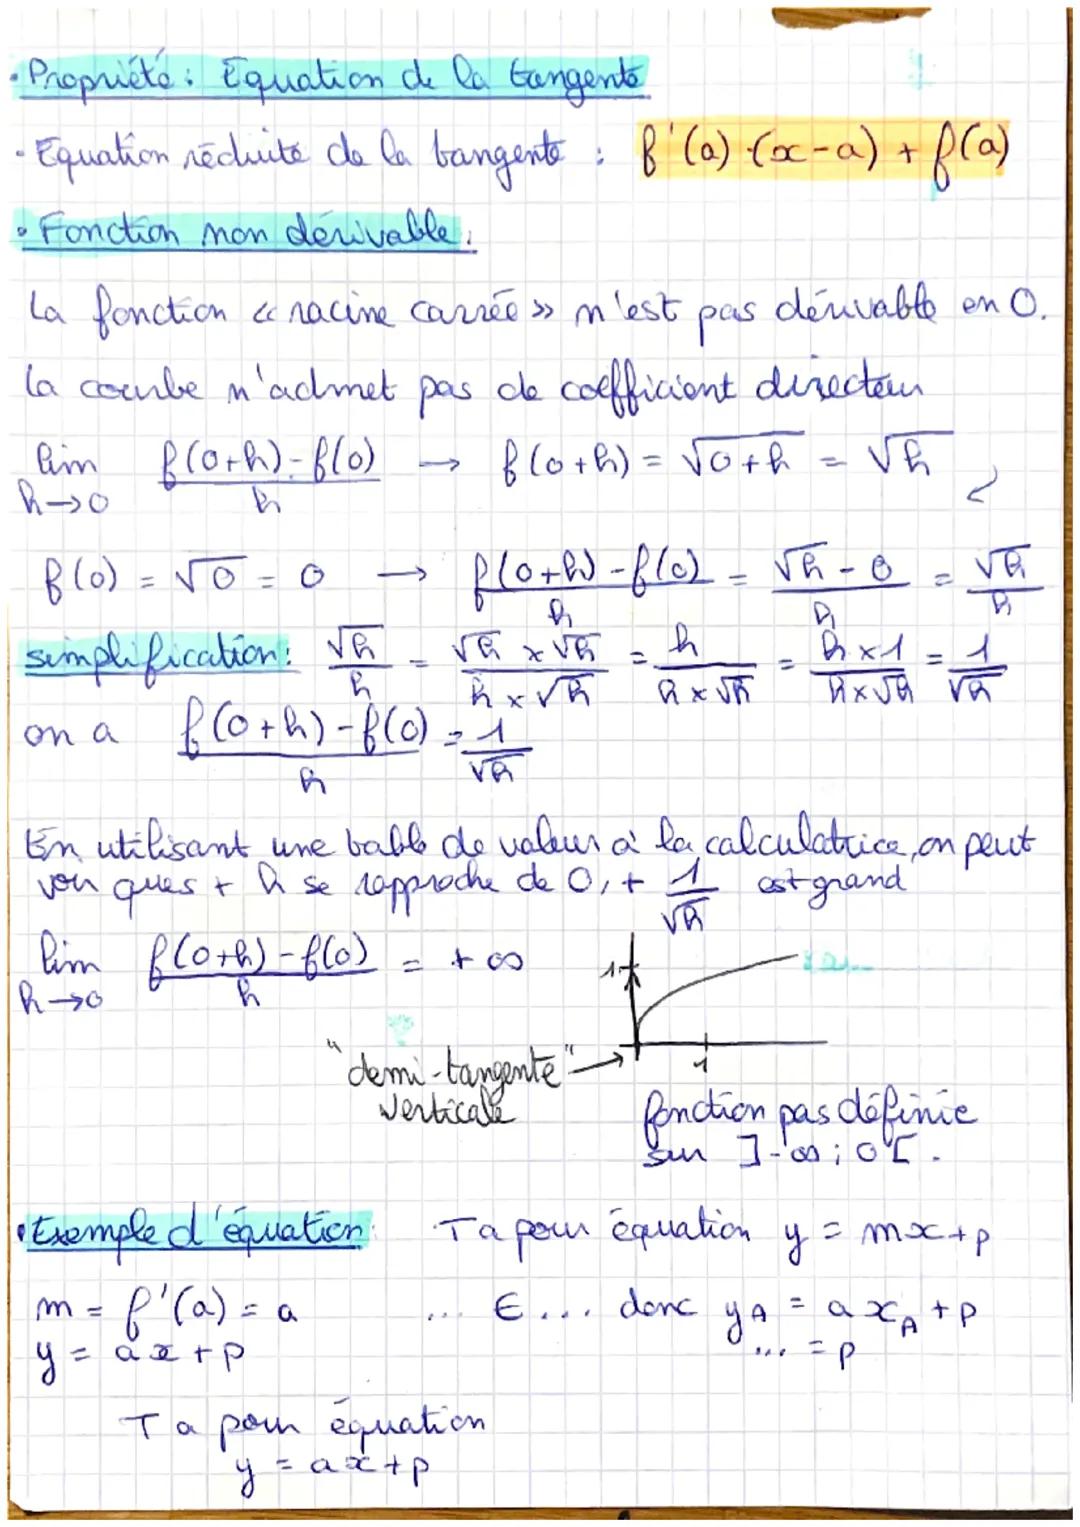 • Propriété : Equation de la tangente
- Equation réduite de la tangente : f'(a)·(x-a) + f(a)
• Fonction non dérivable.
La fonction « racine carrée » n'est pas dérivable en 0.
La courbe n'admet pas de coefficient directeur
lim h→0 (f(0+h)-f(0))/h → f(0+h) = √(0+h) = √h
f(0) = √0 = 0 → (f(0+h)-f(0))/h = (√h-0)/h = √h/h
simplification: √h/h = (√h × √h)/(h × √h) = h/(h × √h) = (h×1)/(h×√h) = 1/√h
on a (f(0+h)-f(0))/h = 1/√h
En utilisant une table de valeur à la calculatrice, on peut
voir ques + h se rapproche de 0, + 1/√h est grand
lim h→0 (f(0+h)-f(0))/h = +∞
1
1
"demi-tangente" →
verticale
fonction pas définie
sur ]-∞; 0[.
• Exemple d'équation: T a pour équation y = mx+p
m = f'(a) = a ... ∈ ... donc yA = a xA + p
y = ax+p ... = p
T a pour équation
y = ax+p